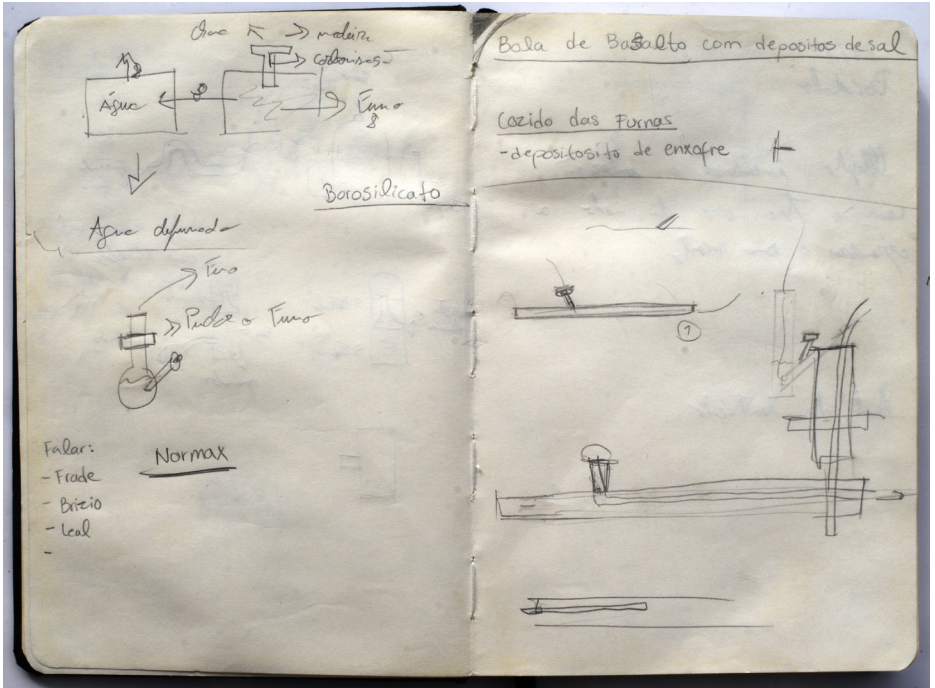 madeira
Água
Fumo
Borosilicato
Água defumada
Fumo
Puxa o Fumo
Falar:
- Frade
- Brizio
- Leal
-
Normax
Bola de Basalto com depositos de sal
Cozido das Furnas
- depositosito de enxofre
1